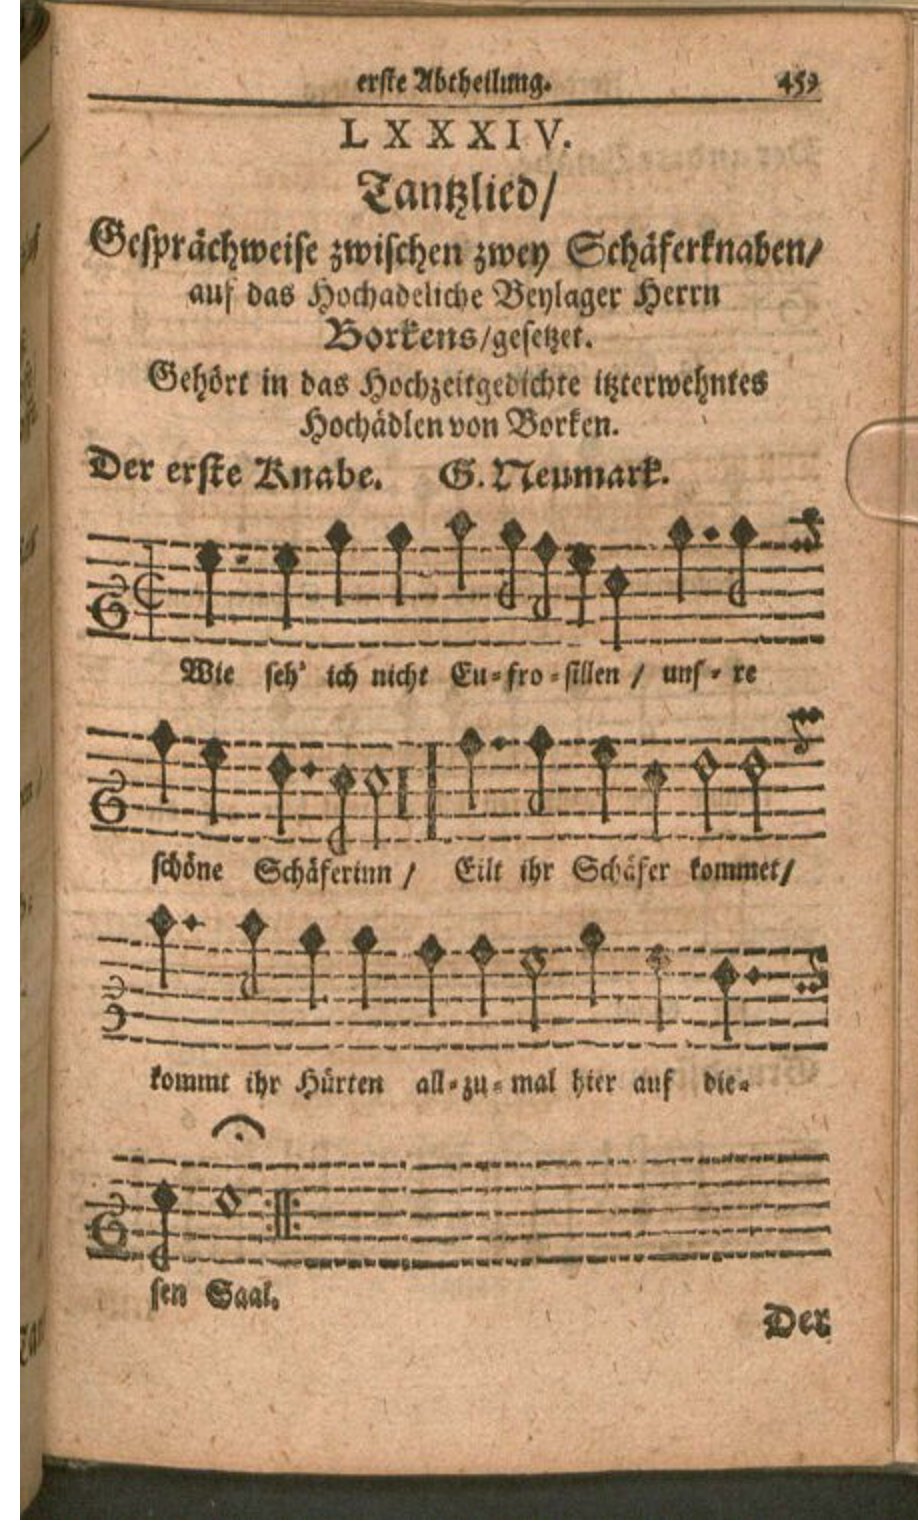 erste Abtheilung. 459
LXXXIV.
Tantzlied/
Gesprächweise zwischen zwey Schäferknaben/
auf das Hochadeliche Beylager Herrn
Borkens/gesetzet.
Gehört in das Hochzeitgedichte itzterwehntes
Hochädlen von Borken.
Der erste Knabe. G. Neumark.
Wie seh' ich nicht Eu-fro-sillen / uns-re
schöne Schäferinn / Eilt ihr Schäfer kommet/
kommt ihr Hürten all-zu-mal hier auf die-
sen Saal.
Der